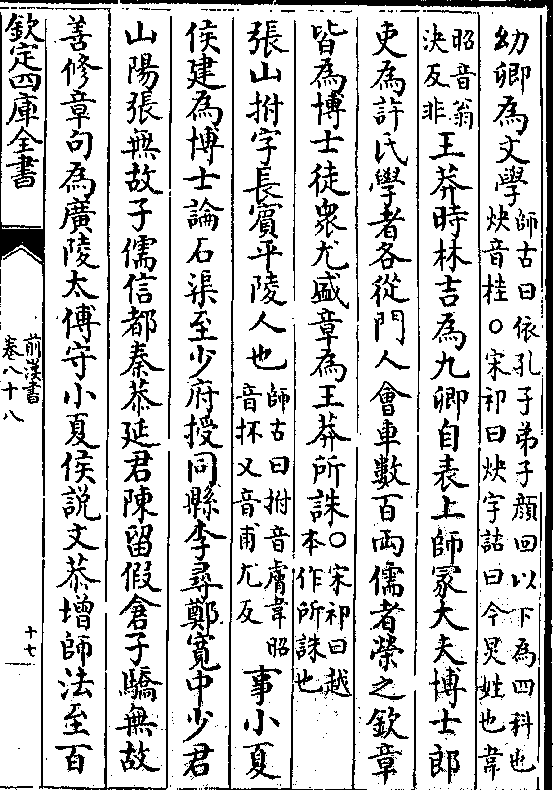 幼卿為文學師古曰依孔子弟子顔回以下為四科也炔音桂○宋祁曰炔字詁曰今炅姓也韋
昭音翁決反非王莽時林吉為九卿自表上師冢大夫博士郎
吏為許氏學者各從門人會車數百兩儒者榮之欽章
皆為博士徒衆尤盛章為王莽所誅○宋祁曰越本作所誅也
張山拊字長賓平陵人也師古曰拊音膚韋昭音抔又音甫尤反事小夏
侯建為博士論石渠至少府授同縣李尋鄭寛中少君
山陽張無故子儒信都秦恭延君陳留假倉子驕無故
善修章句為廣陵太傅守小夏侯説文恭增師法至百
欽定四庫全書
前漢書
卷八十八
十七